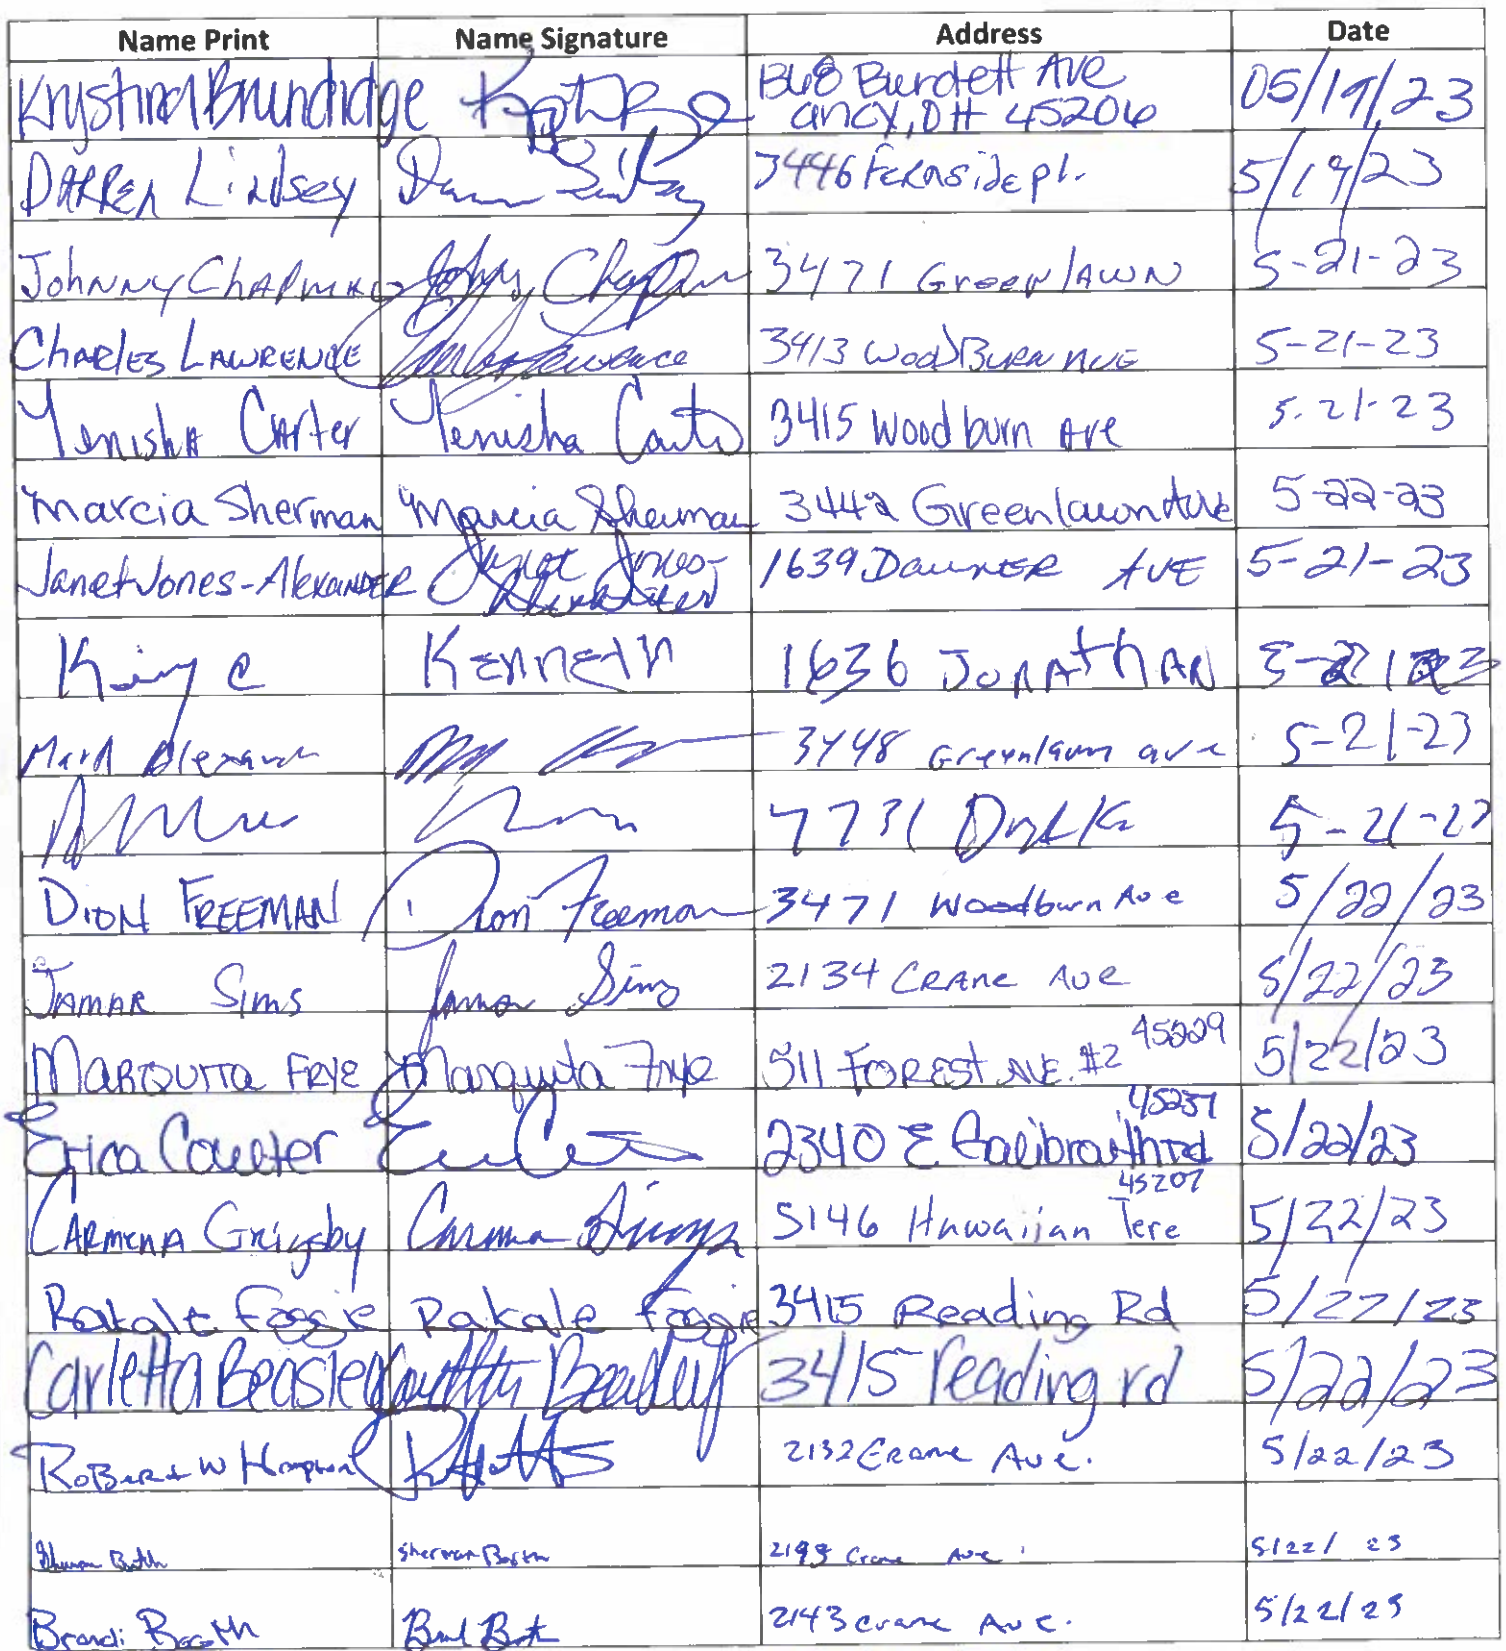 Name Print Name Signature Address Date
Krystina Brundidge Burdett Ave 05/19/23
OH 45206
DARREN Lindsey 3446 FERNSide pl. 5/19/23
Johnny Chapman Johnny Chapman 3471 GreenlAWN 5-21-23
CHARLES LAWRENCE Charles Lawrence 3413 WoodBurn AVE 5-21-23
Yenisha Carter Yenisha Carter 3415 Woodburn Ave 5-21-23
Marcia Sherman Marcia Sherman 3442 Greenlawn Ave 5-22-23
Janet Jones-Alexander Janet Jones- 1639 AVE 5-21-23
Alexander
King C KENNETH 1636 JONATHAN
Mark Alexander 3448 Greenlawn ave 5-21-23
7731 5-21-23
DION FREEMAN Dion Freeman 3471 Woodburn Ave 5/22/23
JAMAR Sims Jamar Sims 2134 CRANE Ave 5/22/23
MARQUITTA FRYE Marquita Frye 511 FOREST AVE. #2 45229 5/22/23
Erica Coulter 2340 E Galibraith rd 45237 5/22/23
CARMENA Grigsby Carmena Grigsby 5146 Hawaiian Tere 45207 5/22/23
Rakale Foggie Rakale Foggie 3415 Reading Rd 5/22/23
Carletta Beasley Carletta Beasley 3415 reading rd 5/22/23
Robert W Hampton 2132 Crane Ave. 5/22/23
Sherman Crane Ave 5/22/23
Brandi Booth 2143 crane Ave. 5/22/23